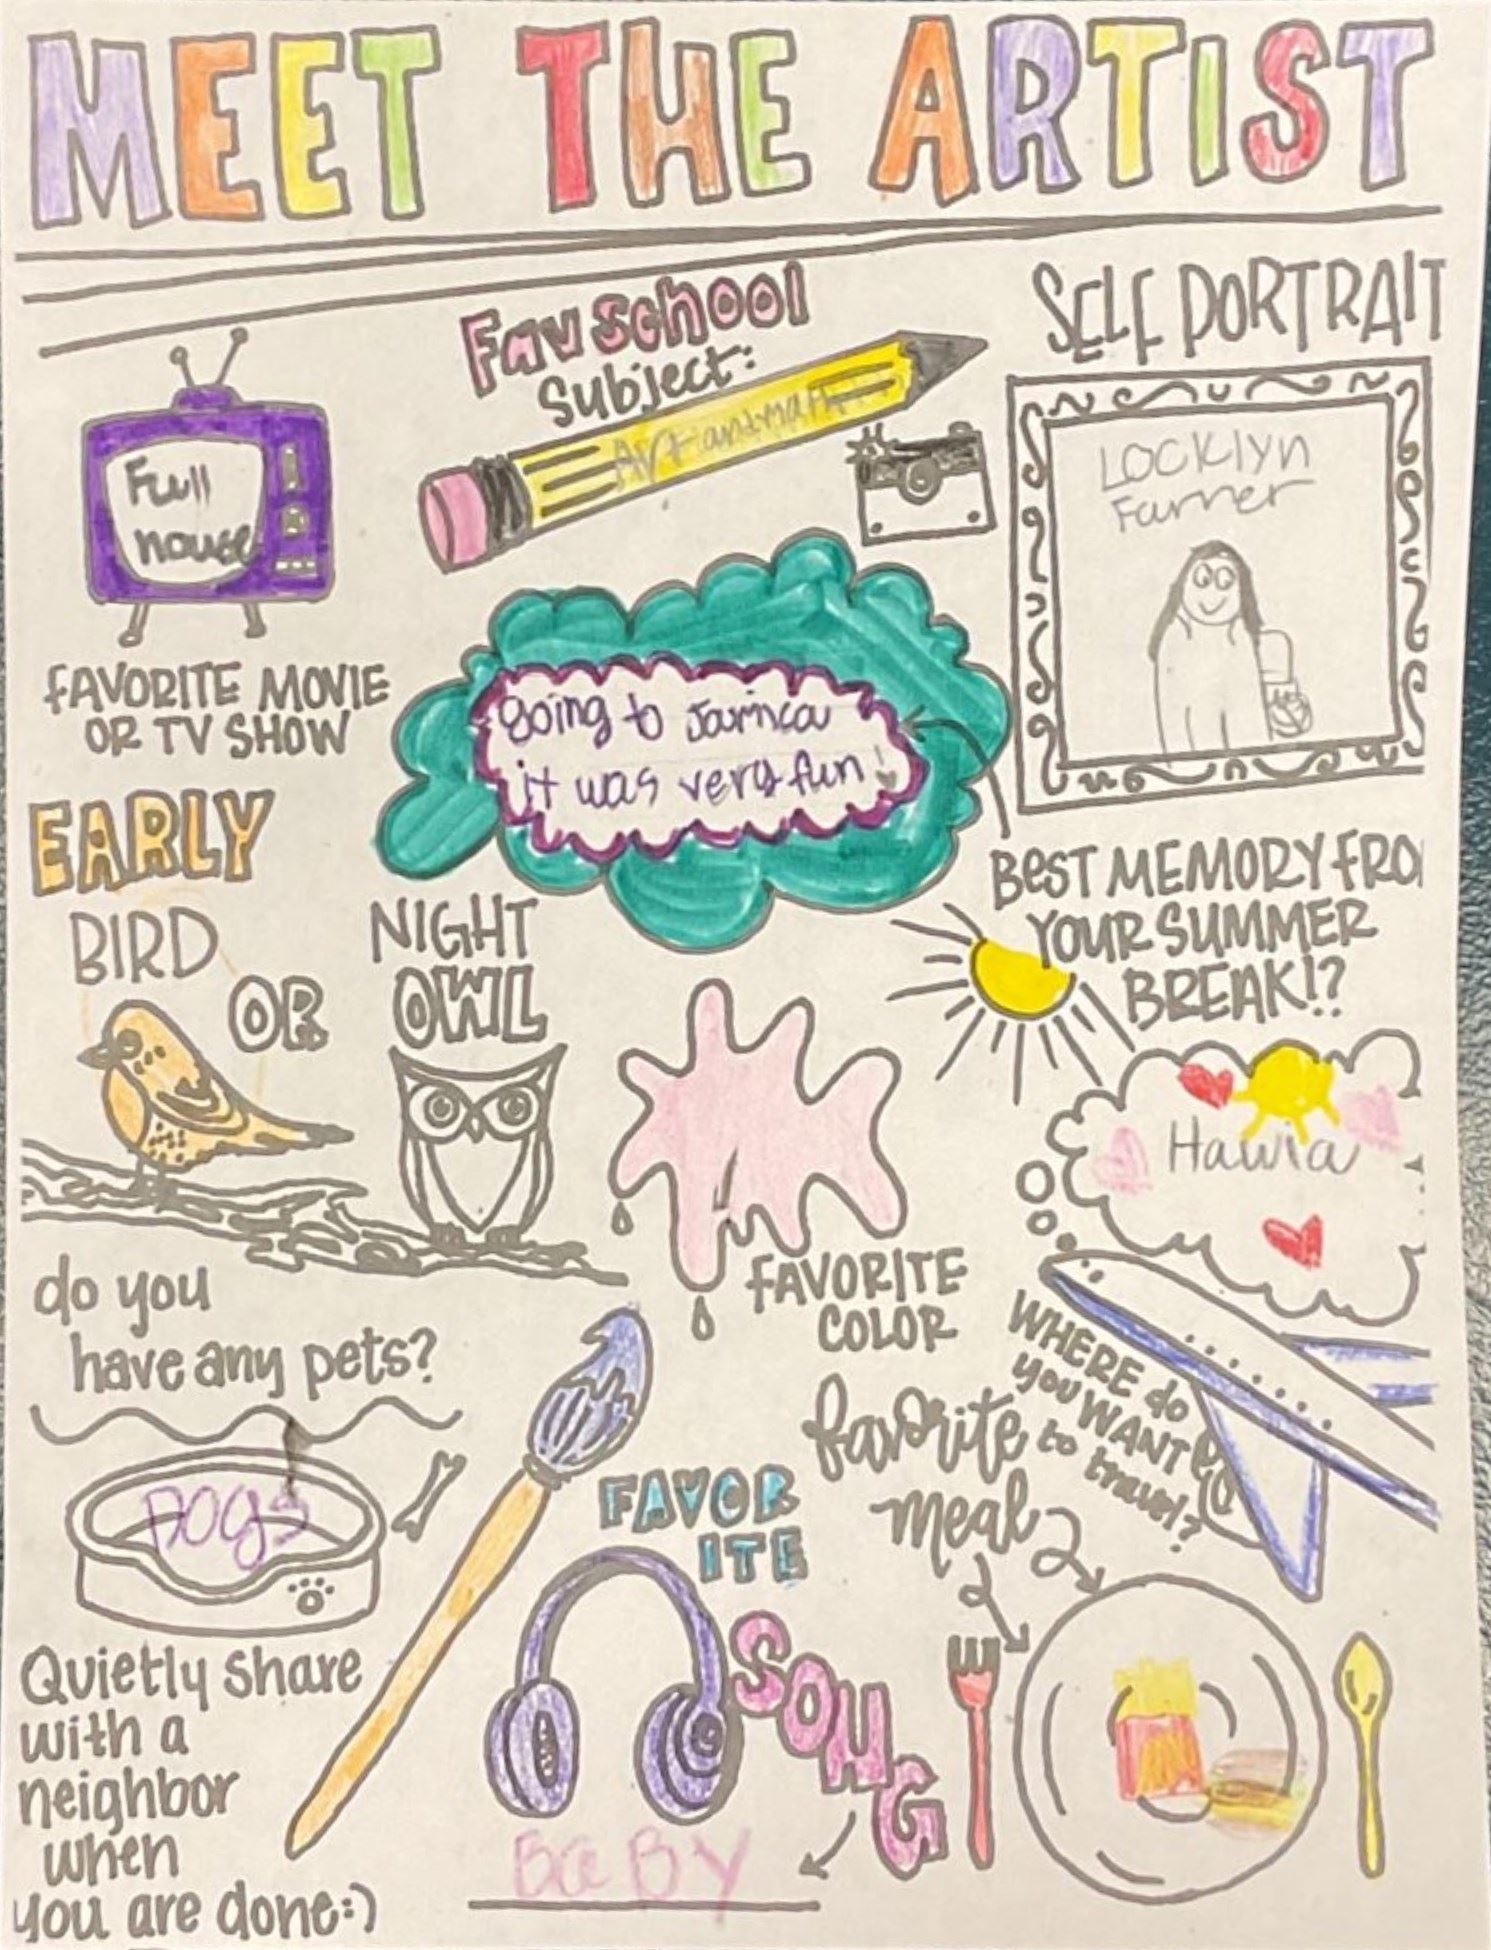 MEET THE ARTIST
Fav school
Subject:
Art and math
SELF PORTRAIT
Locklyn
Farner
Full
house
FAVORITE MOVIE
OR TV SHOW
going to Jamica
it was very fun!
BEST MEMORY FRO
YOUR SUMMER
BREAK!?
EARLY
BIRD
OR
NIGHT
OWL
FAVORITE
COLOR
WHERE do
you WANT
to travel?
do you
have any pets?
DOGS
favorite
meal
FAVOR
ITE
SONG
BaBY
Quietly share
with a
neighbor
when
you are done:)